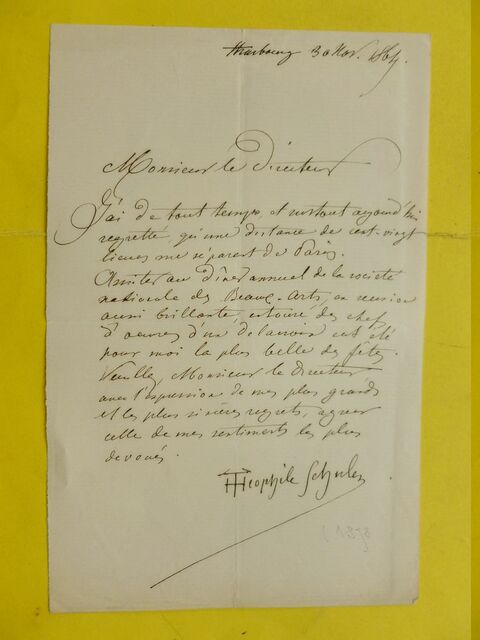 Strasbourg 30 Nov. 1864.
Monsieur le Directeur
J'ai de tout temps, et surtout aujourd'hui
regretté qu'une distance de cent vingt
lieues me séparent de Paris.
Assister au dîner annuel de la société
nationale des Beaux-Arts, en réunion
aussi brillante, entouré des chef
d'œuvres d'
pour moi la plus belle des fêtes.
Veuillez, Monsieur le directeur
avec l'expression de mes plus grands
et les plus sincères regrets, agréer
celle de mes sentiments les plus
dévoués.
Théophile Schuler